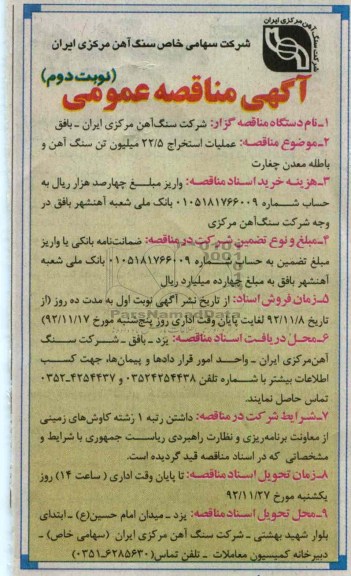 شرکت سنگ آهن مرکزی ایران
شرکت سهامی خاص سنگ آهن مرکزی ایران
(نوبت دوم)
آگهی مناقصه عمومی
۱ـ نام دستگاه مناقصه گزار: شرکت سنگ‌آهن مرکزی ایران ـ بافق
۲ـ موضوع مناقصه: عملیات استخراج ۲۲/۵ میلیون تن سنگ آهن و
باطله معدن چغارت
۳ـ هزینه خرید اسناد مناقصه: واریز مبلغ چهارصد هزار ریال به
حساب شماره ۰۱۰۵۱۸۱۷۶۶۰۰۹ بانک ملی شعبه آهنشهر بافق در
وجه شرکت سنگ‌آهن مرکزی
۴ـ مبلغ و نوع تضمین شرکت در مناقصه: ضمانت‌نامه بانکی یا واریز
مبلغ تضمین به حساب شماره ۰۱۰۵۱۸۱۷۶۶۰۰۹ بانک ملی شعبه
آهنشهر بافق به مبلغ چهارده میلیارد ریال
۵ـ زمان فروش اسناد: از تاریخ نشر آگهی نوبت اول به مدت ده روز (از
تاریخ ۹۲/۱۱/۸ لغایت پایان وقت اداری روز پنج‌شنبه مورخ ۹۲/۱۱/۱۷)
۶ـ محل دریافت اسناد مناقصه: یزد ـ بافق ـ شرکت سنگ
آهن‌مرکزی ایران ـ واحد امور قرار دادها و پیمان‌ها، جهت کسب
اطلاعات بیشتر با شماره تلفن ۰۳۵۲۴۲۵۴۴۳۸ و ۴۲۵۴۴۳۷-۰۳۵۲
تماس حاصل نمایند.
۷ـ شرایط شرکت در مناقصه: داشتن رتبه ۱ رشته کاوش‌های زمینی
از معاونت برنامه‌ریزی و نظارت راهبردی ریاست جمهوری با شرایط و
مشخصاتی که در اسناد مناقصه قید گردیده است.
۸ـ زمان تحویل اسناد مناقصه: تا پایان وقت اداری ( ساعت ۱۴) روز
یکشنبه مورخ ۹۲/۱۱/۲۷
۹ـ محل تحویل اسناد مناقصه: یزد ـ میدان امام حسین(ع) ـ ابتدای
بلوار شهید بهشتی ـ شرکت سنگ آهن مرکزی ایران (سهامی خاص) ـ
دبیرخانه کمیسیون معاملات ـ تلفن تماس(۶۲۸۵۶۳۰-۰۳۵۱)